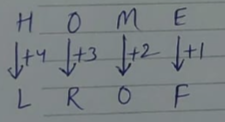 H O M E
↓+4 ↓+3 ↓+2 ↓+1
L R O F